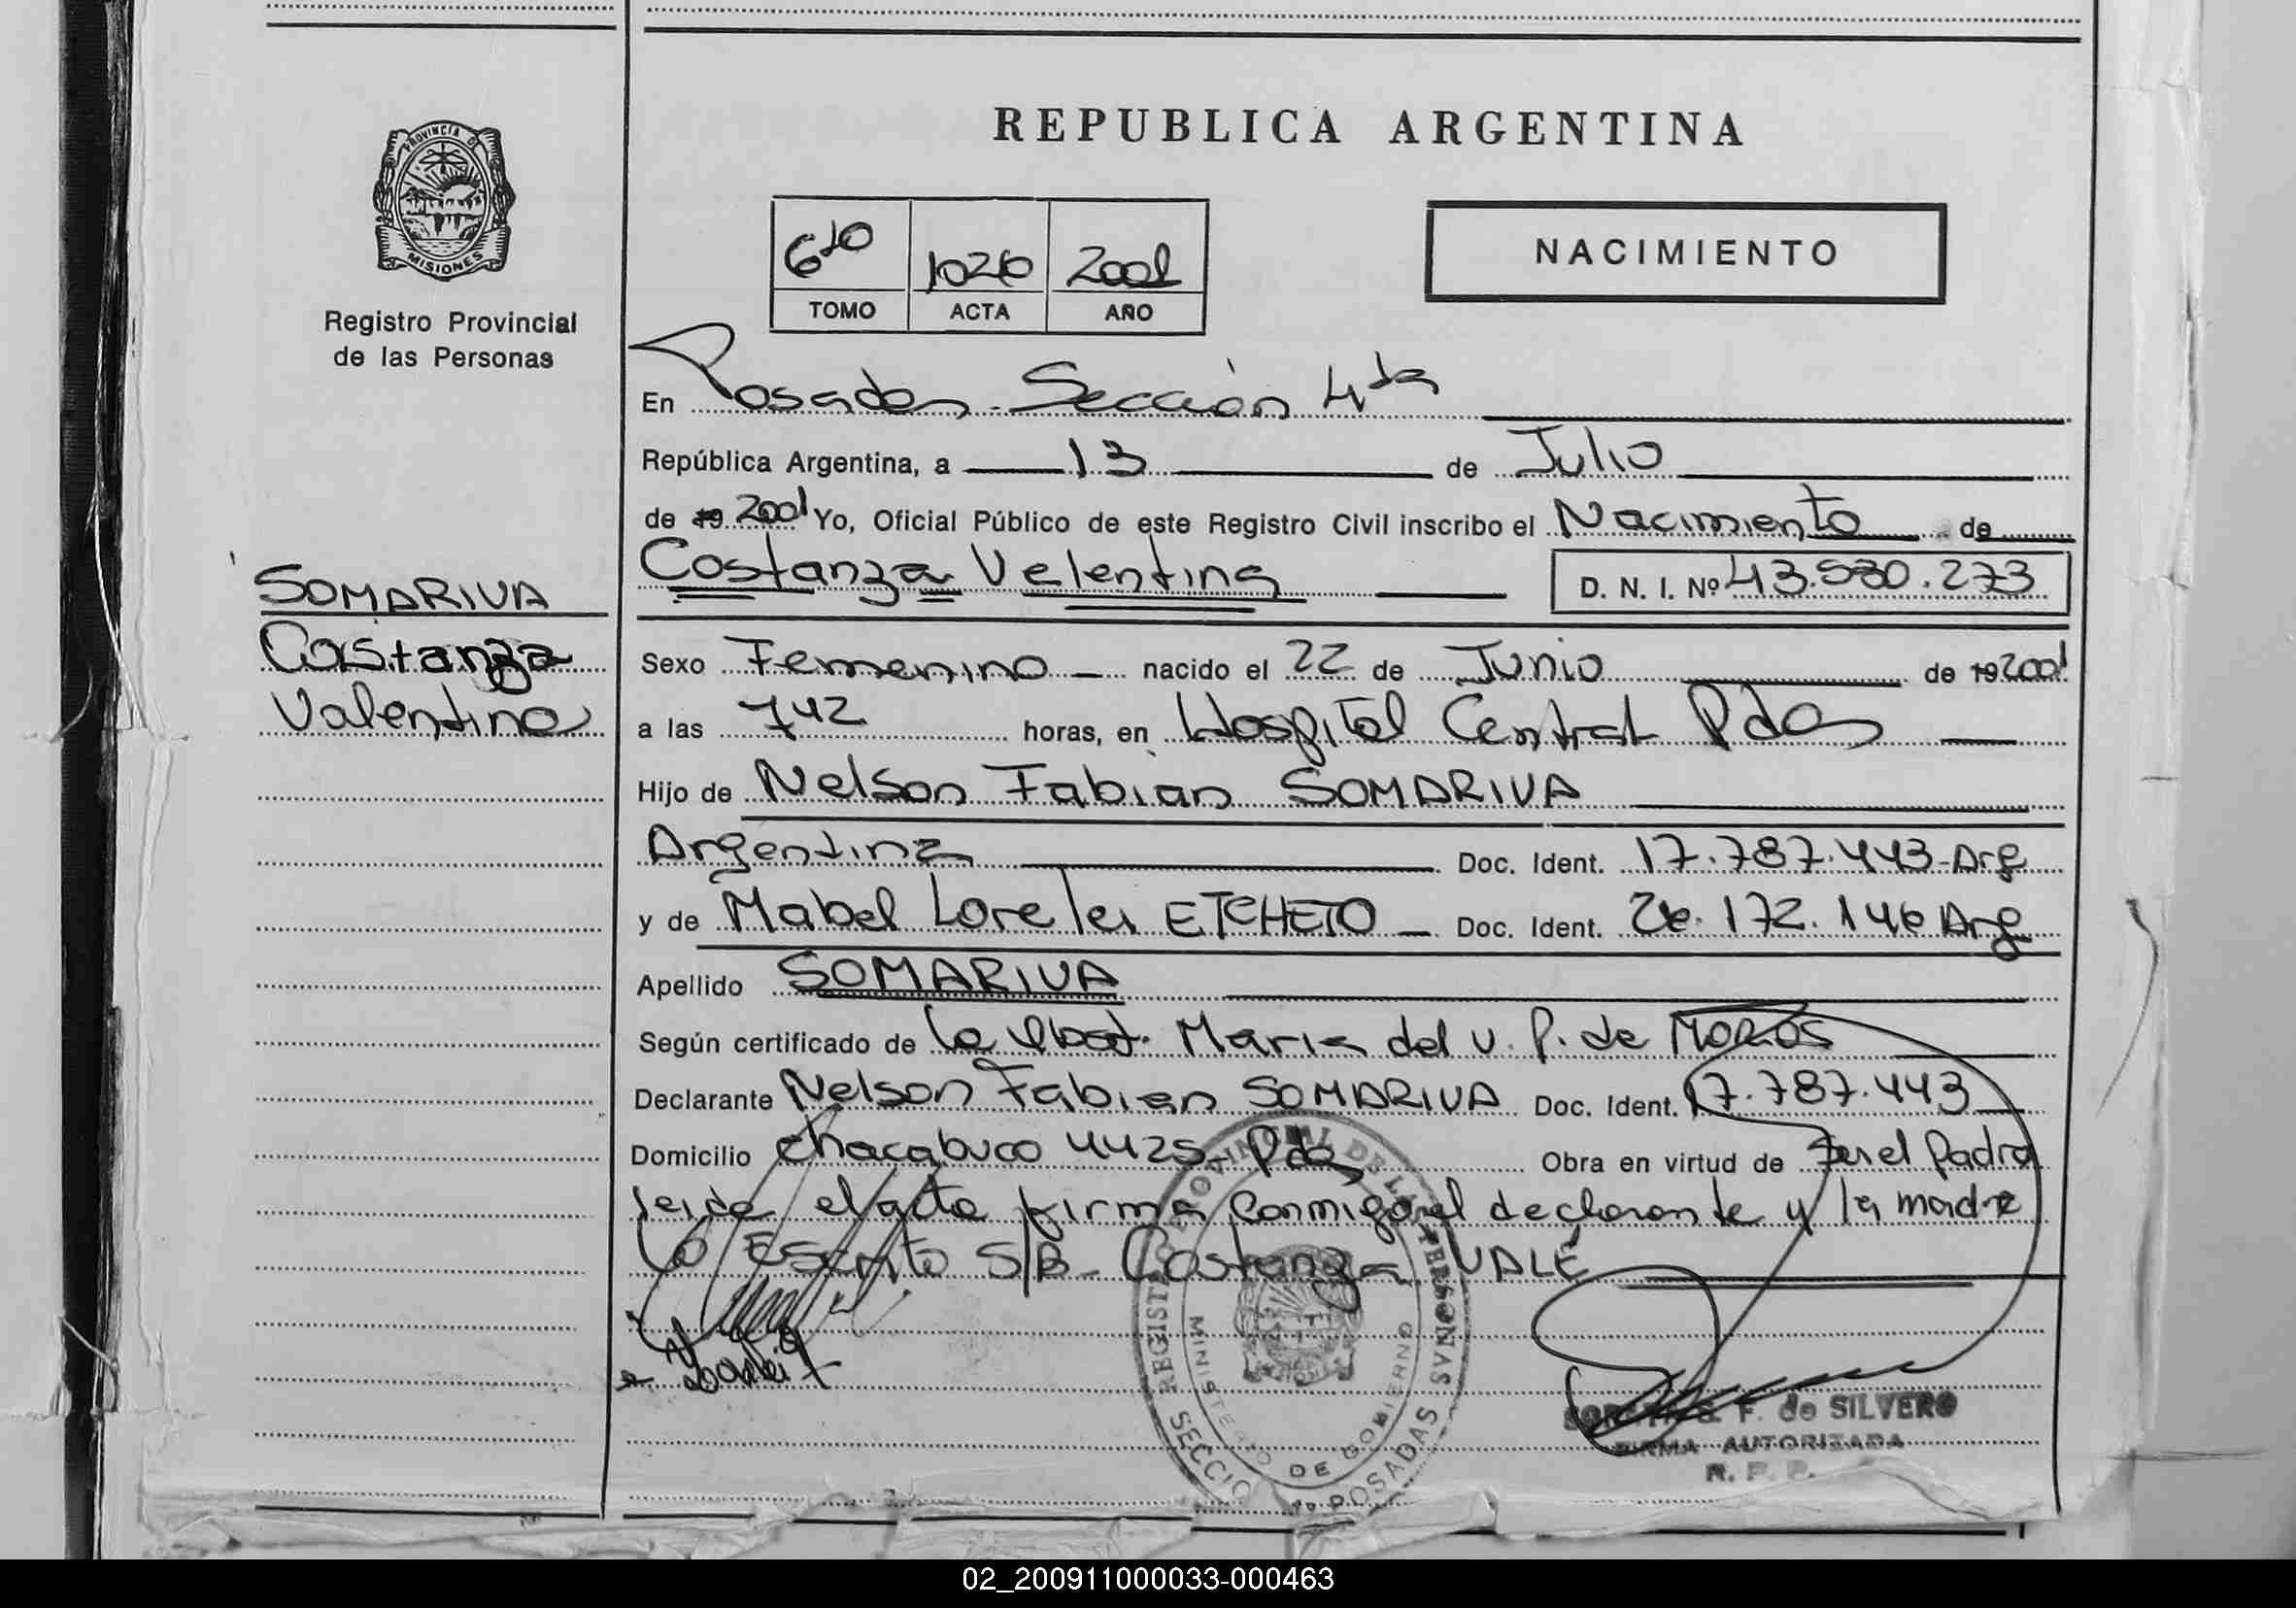 REPUBLICA ARGENTINA
PROVINCIA DE
MISIONES
Registro Provincial
de las Personas
6to 1026 2001
TOMO ACTA AÑO
NACIMIENTO
En Posadas Sección 4ta
República Argentina, a 13 de Julio
de 19 2001 Yo, Oficial Público de este Registro Civil inscribo el Nacimiento de
Costanza Valentina D. N. I. Nº 43.530.273
SOMARIVA
Costanza
Valentina
Sexo Femenino nacido el 22 de Junio de 19 2001
a las 742 horas, en Hospital Central Pdas
Hijo de Nelson Fabian SOMARIVA
Argentina Doc. Ident. 17.787.443 Arg
y de Mabel Lorelei ETCHETO Doc. Ident. 26.172.146 Arg
Apellido SOMARIVA
Según certificado de la Obst. Maria del V. P. de MOROS
Declarante Nelson Fabian SOMARIVA Doc. Ident. 17.787.443
Domicilio Chacabuco 4425 Pdas Obra en virtud de Ser el Padre
leida el acta firma conmigo el declarante y la madre
Lo Escrito S/B Costanza VALE
REGISTRO PROVINCIAL DE LAS PERSONAS
MINISTERIO DE GOBIERNO
SECCIO POSADAS
F. de SILVERO
FIRMA AUTORIZADA
R. P. P.
02_200911000033-000463